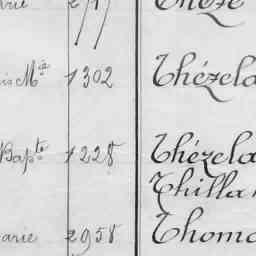 is Mie 1302 Thézela
Bapte 1228 Thézela
Thilla
arie 2958 Thoma